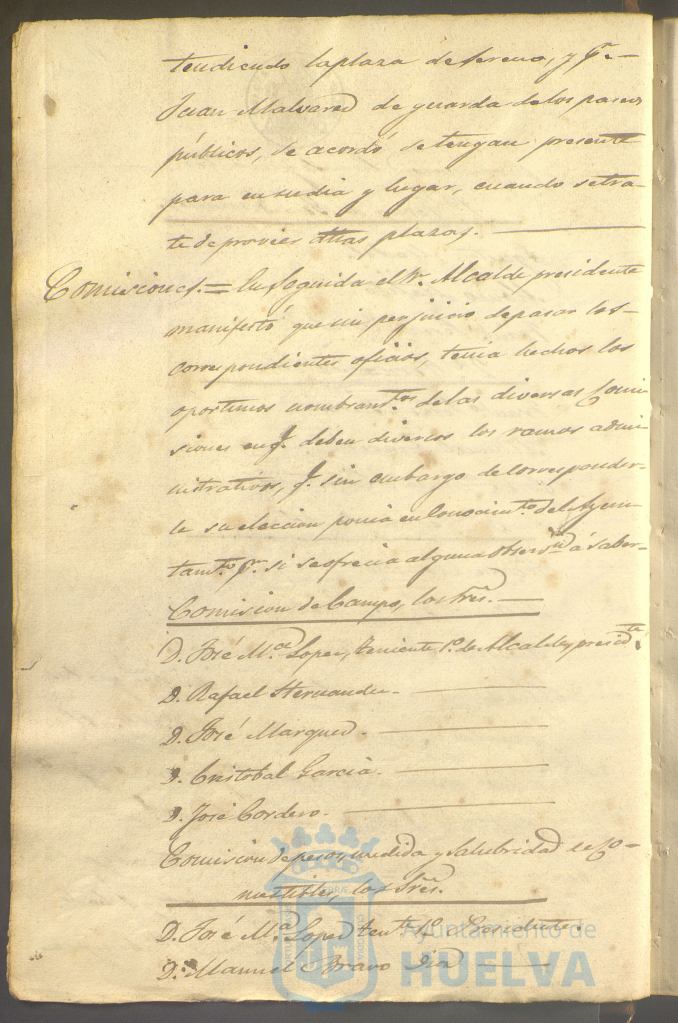 tendiendo la plaza de sereno, y pr.
Juan Malvarez de guarda de los paseos
públicos, se acordó se tengan presente
para en su dia y lugar, cuando se tra-
te de proveer dhas plazas.
Comisiones. = En seguida el Sr. Alcalde presidente
manifestó que sin perjuicio de pasar los
correspondientes oficios, tenia hechos los
oportunos nombramtos. de las diversas Comi
siones en q. deben dividirse los ramos admi
nistrativos, q. sin embargo de corresponder-
le su eleccion ponia en conocimto. del Ayun-
tamto. pr. si se ofrecia alguna observn. á saber-
Comision de Campo, los Sres.
D. José Ma. Lopez, teniente 1o. de Alcalde, presidte.
D. Rafael Hernandez.
D. José Marquez.
D. Cristobal Garcia.
D. José Cordero.
Comision de peso, medida y salubridad de Co-
mestibles, los Sres.
D. José Ma. Lopez tente. 1o. Presidente.
D. Manuel Bravo
Ayuntamiento de
HUELVA